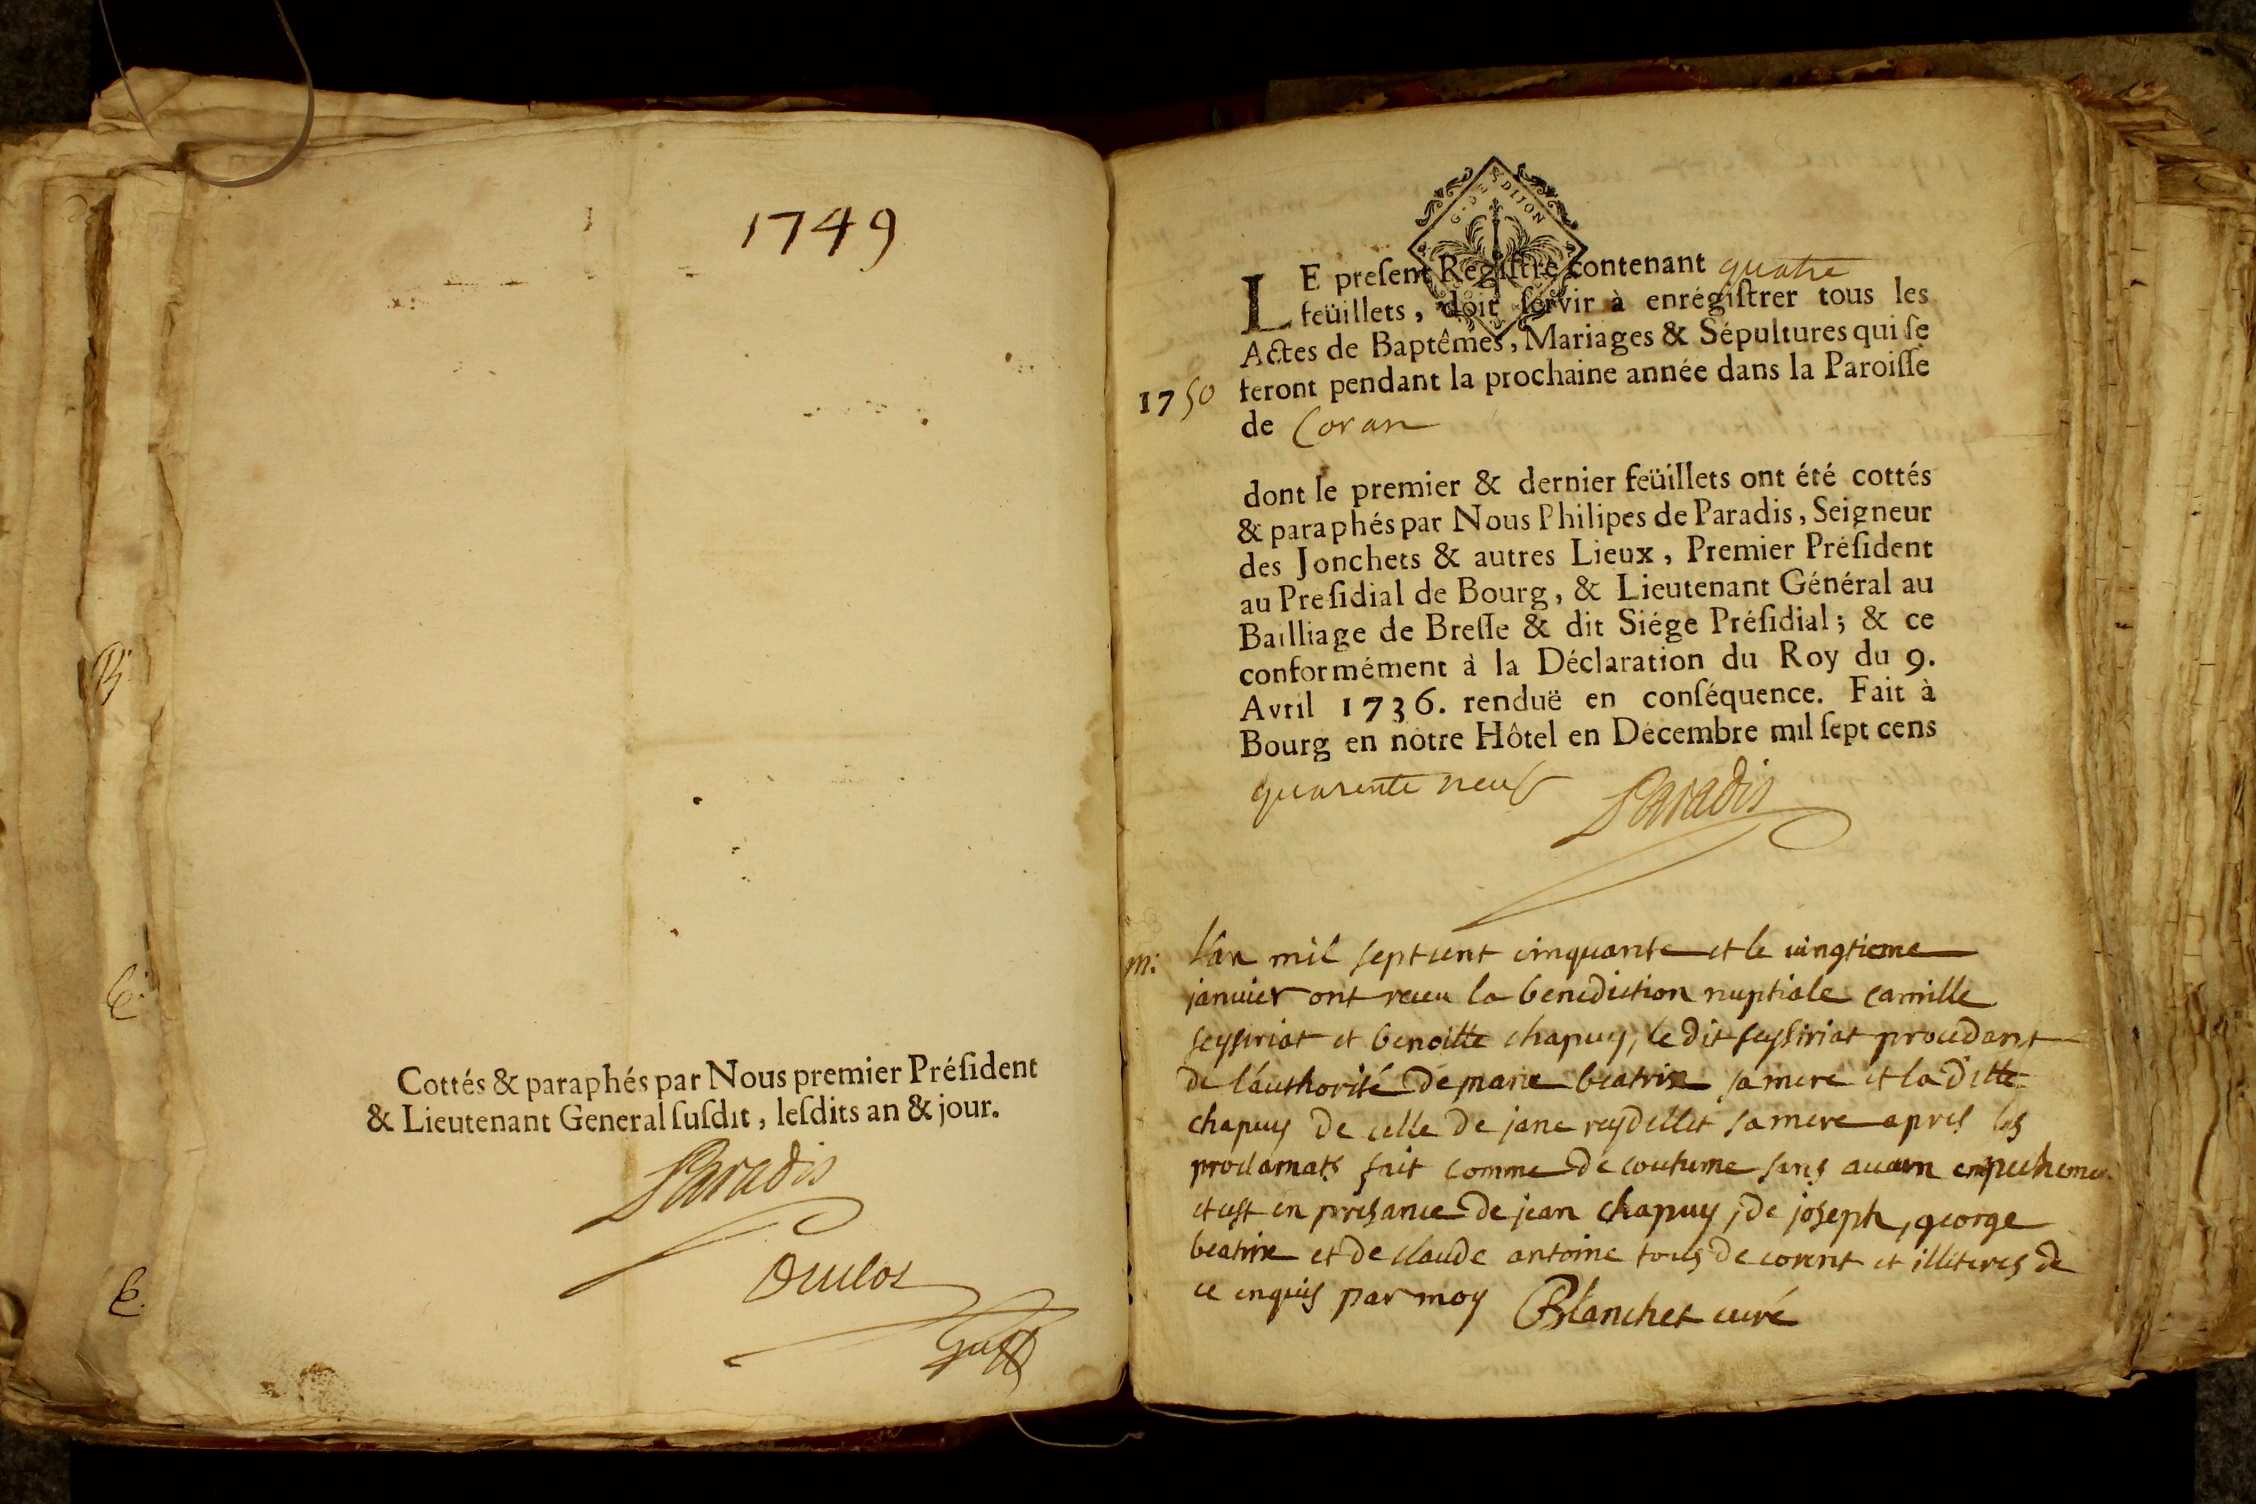 1749
Cottés & paraphés par Nous premier Préſident
& Lieutenant General ſuſdit, leſdits an & jour.
Paradis
Duclos
B
G. DE DIJON
LE preſent Regiſtre contenant quatre
feüillets, doit ſervir à enrégiſtrer tous les
Actes de Baptêmes, Mariages & Sépultures qui ſe
1750 feront pendant la prochaine année dans la Paroiſſe
de Coran
dont le premier & dernier feüillets ont été cottés
& paraphés par Nous Philipes de Paradis, Seigneur
des Jonchets & autres Lieux, Premier Préſident
au Preſidial de Bourg, & Lieutenant Général au
Bailliage de Breſſe & dit Siége Préſidial; & ce
conformément à la Déclaration du Roy du 9.
Avril 1736. renduë en conſéquence. Fait à
Bourg en notre Hôtel en Décembre mil ſept cens
quarente neuf Paradis
m: l'an mil sept cent cinquante et le vingtieme
janvier ont receu la benediction nuptiale camille
seysiriat et benoitte chapuy, le dit seysiriat procedant
de l'authorité de marie beatrix sa mere et la ditte
chapuy de celle de jane reydellet sa mere apres les
proclamats fait comme de coutume sans aucun empechemen
et cest en presance de jean chapuy, de joseph, george
beatrix et de claude antoine tous de corent et illiteres de
ce enquis par moy Blanchet curé